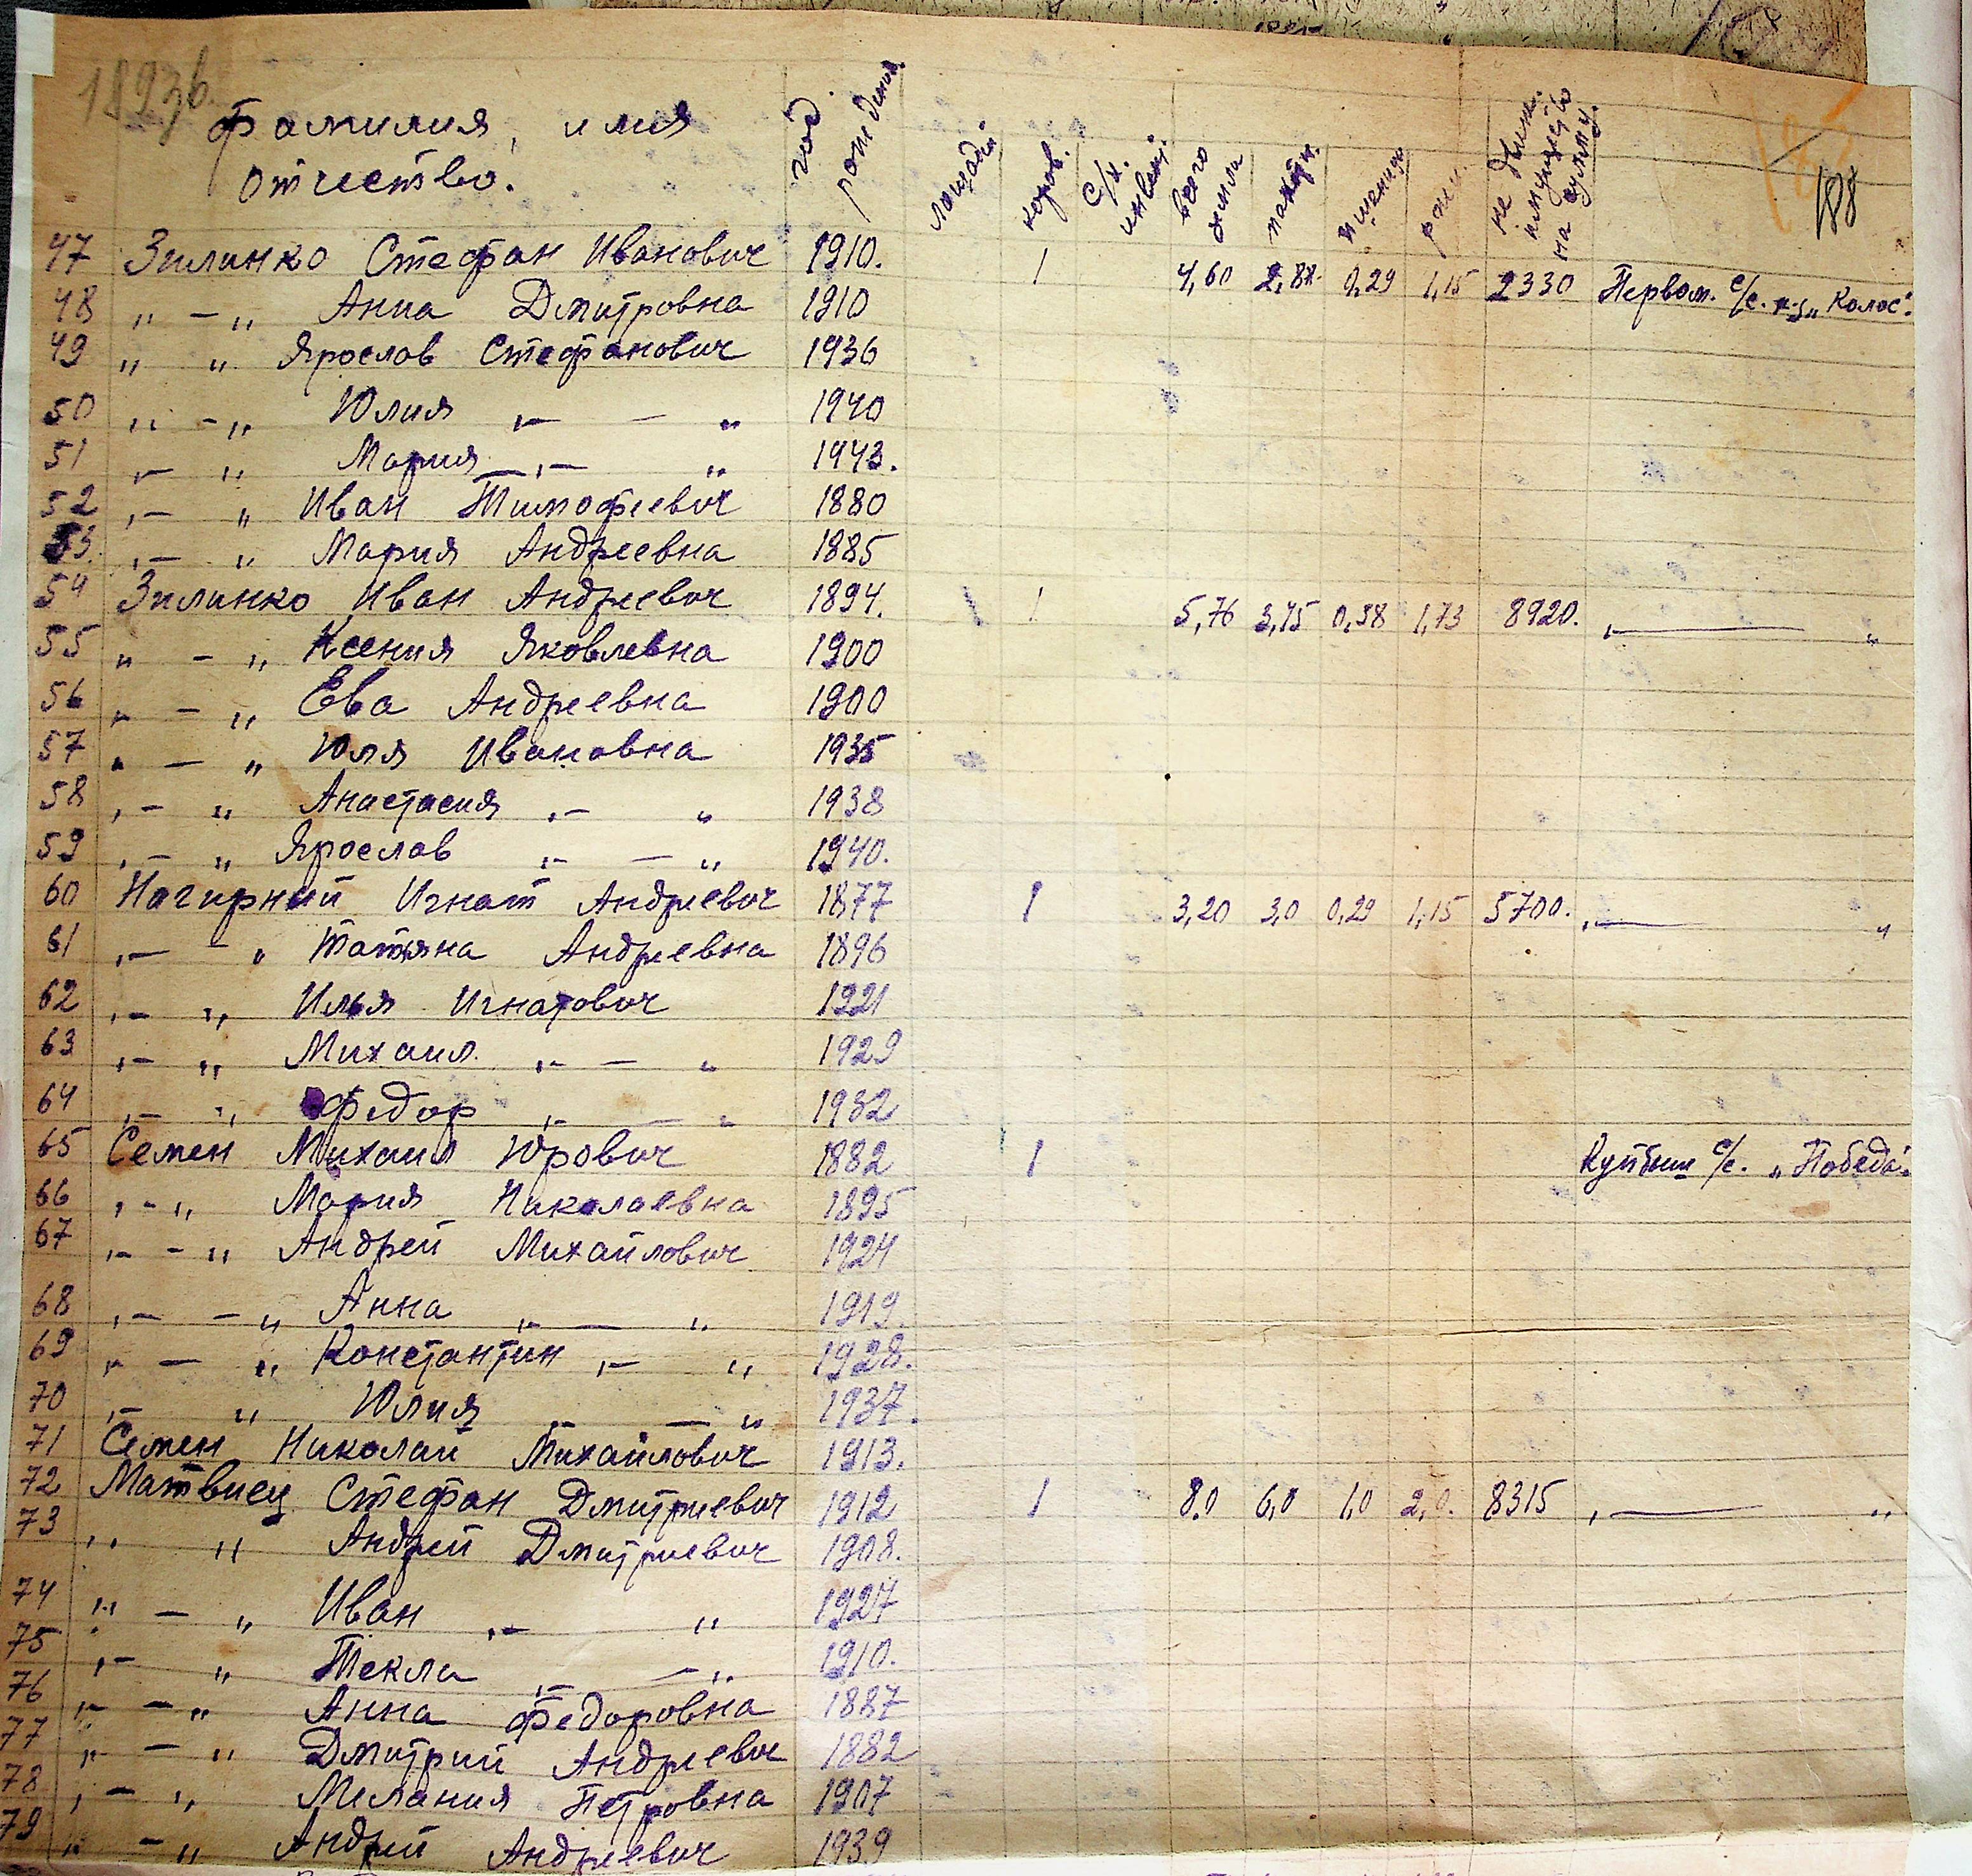 Фамилия, имя отчество. год рождения лошадей коров. с/х. инвент. всего земли пахотн. пшеницы ржи. не движим. имущество на сумму.
188
47 Зилинко Стефан Иванович 1910. 1 4,60 2,88 0,29 1,15 2330 Первом. с/с. к-з „Колос".
48 „ - „ Анна Дмитровна 1910
49 „ „ Ярослав Стефанович 1936
50 „ - „ Юлия „ - „ 1940
51 „ - „ Мария „ - „ 1943.
52 „ - „ Иван Тимофеевич 1880
53. „ - „ Мария Андреевна 1885
54 Зилинко Иван Андреевич 1894. 1 1 5,76 3,45 0,38 1,73 8920. „ — „
55 „ - „ Ксения Яковлевна 1900
56 „ - „ Ева Андреевна 1900
57 „ - „ Юля Ивановна 1935
58 „ - „ Анастасия „ - „ 1938
59 „ - „ Ярослав „ - „ 1940.
60 Нагирний Игнат Андреевич 1877 1 3,20 3,0 0,29 1,15 5700. „ — „
61 „ - „ Татяна Андреевна 1896
62 „ - „ Илья Игнатович 1921
63 „ - „ Михаил „ - „ 1929
64 „ - „ Федор „ - „ 1932
65 Семен Михаил Юрович 1882 1 Куйбыш с/с. „Победа".
66 „ - „ Мария Николаевна 1895
67 „ - „ Андрей Михайлович 1924
68 „ - „ Анна „ - „ 1919.
69 „ - „ Константин „ - „ 1928.
70 „ - „ Юлия „ - „ 1937.
71 Семен Николай Михайлович 1913.
72 Матвиец Стефан Дмитриевич 1912 1 8,0 6,0 1,0 2,0. 8315 „ — „
73 „ „ Андрей Дмитриевич 1908.
74 „ - „ Иван „ - „ 1927
75 „ - „ Текла „ - „ 1910.
76 „ - „ Анна Федоровна 1887
77 „ - „ Дмитрий Андреевич 1882
78 „ - „ Мелания Петровна 1907
79 „ - „ Андрей Андреевич 1939